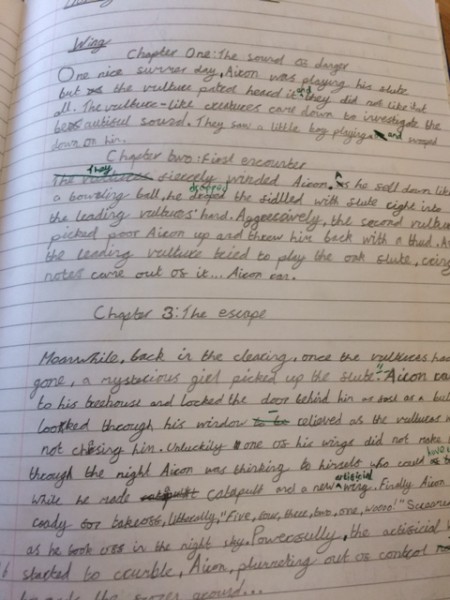 Wing
Chapter One: The sound of danger
One nice summer day, Aixon was playing his flute
but as the vulture patrol heard it and they did not like that
all. The vulture-like creatures came down to investigate the
beautiful sound. They saw a little boy playing and swooped
down on him.
Chapter two: First encounter
They fiercely winded Aixon. As he fell down like
a bowling ball, he dropped the flute right into
the leading vultures' hand. Aggressively, the second vulture
picked poor Aixon up and threw him back with a thud. As
the leading vulture tried to play the oak flute,
notes came out of it... Aixon ran.
Chapter 3: The escape
Meanwhile, back in the clearing, once the vultures had
gone, a mysterious girl picked up the flute. Aixon ran
to his treehouse and locked the door behind him as fast as a
Looked through his window relieved as the vultures
not chasing him. Unluckily one of his wings did not make
through the night Aixon was thinking to himself who could
while he made catapult and a new artificial wing. Finally Aixon
ready for takeoff, litterally, "Five, four, three, two, one, woooo!"
as he took off in the night sky. Powerfully, the artificial
started to crumble, Aixon, plummeting out of control
ground...